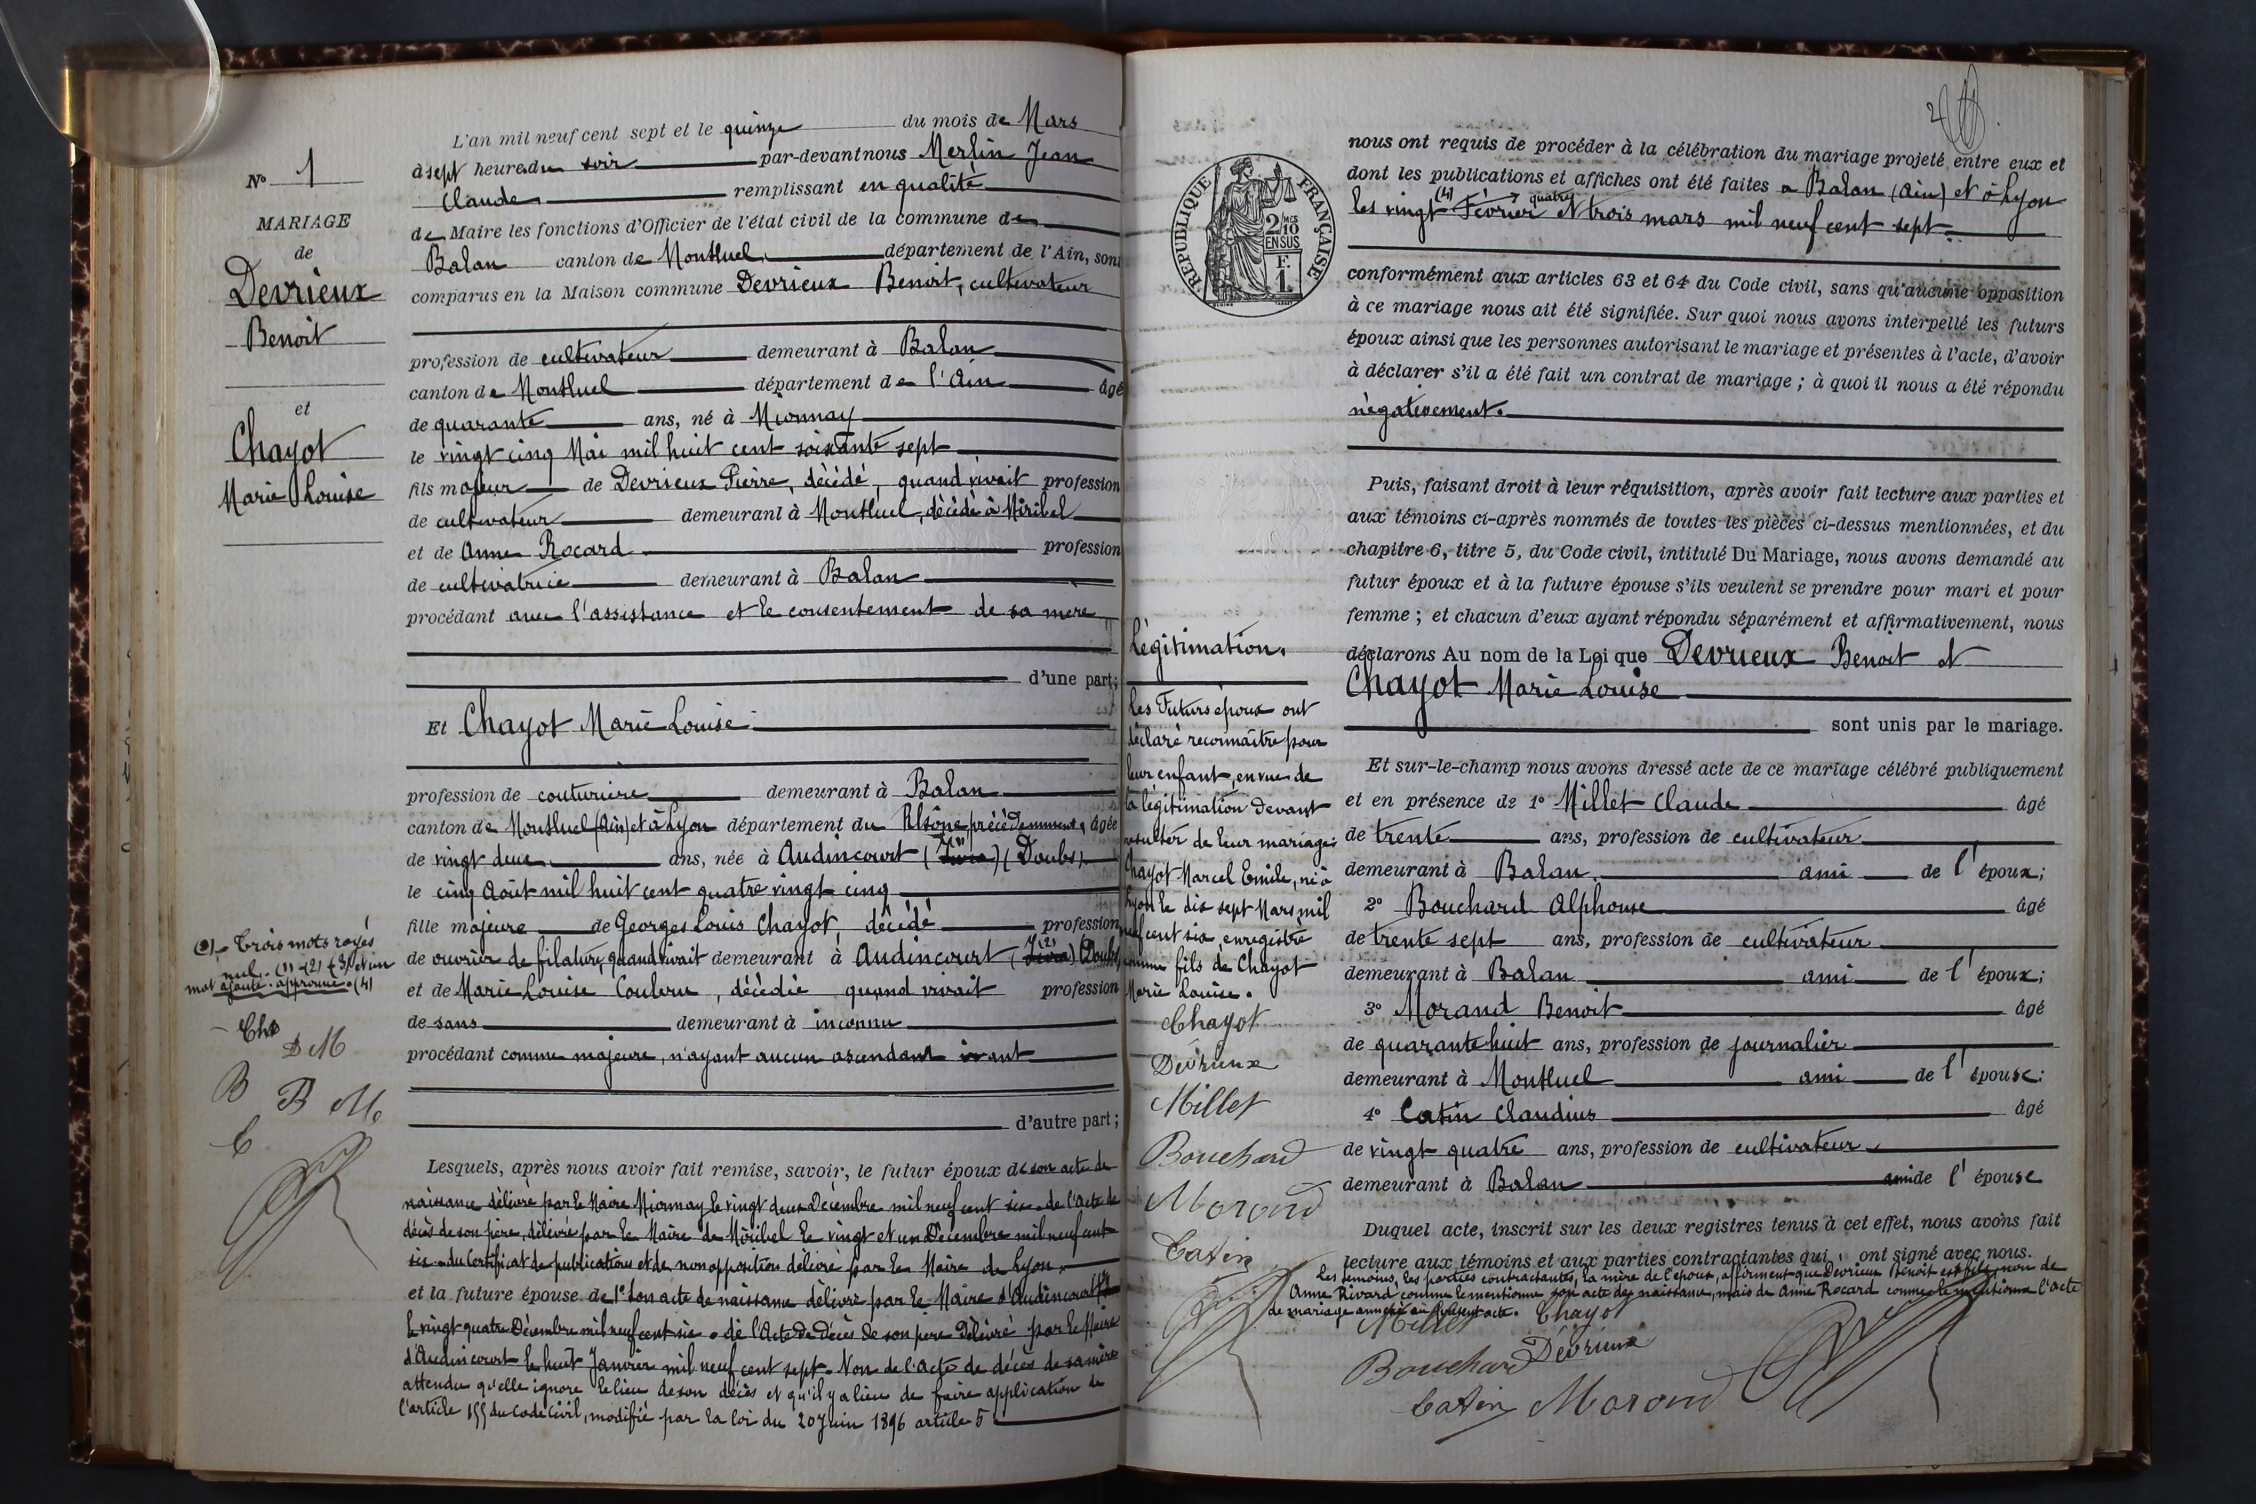 N° 1
MARIAGE
de
Devrieux
Benoit
et
Chayot
Marie Louise
(2) Trois mots rayés
nul. (1) (2) (3) et un
mot ajouté. approuvé. (4)
Ch
D M
B B M
C
L'an mil neuf cent sept et le quinze du mois de Mars
à sept heures du soir par-devant nous Merlin Jean
Claude remplissant en qualité
de Maire les fonctions d'Officier de l'état civil de la commune de
Balan canton de Montluel département de l'Ain, sont
comparus en la Maison commune Devrieux Benoit, cultivateur
profession de cultivateur demeurant à Balan
canton de Montluel département de l'Ain âgé
de quarante ans, né à Mionnay
le vingt cinq Mai mil huit cent soixante sept
fils majeur de Devrieux Pierre, décédé, quand vivait profession
de cultivateur demeurant à Montluel, décédé à Miribel
et de Anne Rocard profession
de cultivatrice demeurant à Balan
procédant avec l'assistance et le consentement de sa mère
d'une part;
Et Chayot Marie Louise
profession de couturière demeurant à Balan
canton de Montluel (Ain) et à Lyon département du Rhône précédemment, âgée
de vingt deux ans, née à Audincourt (Doubs)
le cinq Août mil huit cent quatre vingt cinq
fille majeure de Georges Louis Chayot, décédé profession
de ouvrier de filature, quand vivait demeurant à Audincourt (2) (Doubs)
et de Marie Louise Couleru, décédée quand vivait profession
de sans demeurant à inconnu
procédant comme majeure, n'ayant aucun ascendant vivant
d'autre part;
Lesquels, après nous avoir fait remise, savoir, le futur époux de son acte de
naissance délivré par le Maire Mionnay le vingt deux Décembre mil neuf cent six. de l'acte de
décès de son père, délivré par le Maire de Miribel le vingt et un Décembre mil neuf cent
six. du Certificat de publications et de non opposition délivré par le Maire de Lyon.
et la future épouse de 1° son acte de naissance délivré par le Maire d'Audincourt
le vingt quatre Décembre mil neuf cent six. de l'Acte de Décès de son père délivré par le Maire
d'Audincourt le huit Janvier mil neuf cent sept. Non de l'acte de décès de sa mère
attendu qu'elle ignore le lieu de son décès et qu'il y a lieu de faire application de
l'article 155 du Code Civil, modifié par la loi du 20 juin 1896 article 5
Légitimation.
Les Futurs époux ont
déclaré reconnaître pour
leur enfant, en vue de
la légitimation devant
résulter de leur mariage:
Chayot Marcel Emile, né à
Lyon le dix sept Mars mil
neuf cent six, enregistré
comme fils de Chayot
Marie Louise.
Chayot
Devrieux
Millet
Bouchard
Morand
Catin
RÉPUBLIQUE FRANÇAISE
2/10
EN SUS
F.
1.
2
nous ont requis de procéder à la célébration du mariage projeté entre eux et
dont les publications et affiches ont été faites à Balan (Ain) et à Lyon
les vingt (4) quatre Février et trois mars mil neuf cent sept.
conformément aux articles 63 et 64 du Code civil, sans qu'aucune opposition
à ce mariage nous ait été signifiée. Sur quoi nous avons interpellé les futurs
époux ainsi que les personnes autorisant le mariage et présentes à l'acte, d'avoir
à déclarer s'il a été fait un contrat de mariage; à quoi il nous a été répondu
négativement.
Puis, faisant droit à leur réquisition, après avoir fait lecture aux parties et
aux témoins ci-après nommés de toutes les pièces ci-dessus mentionnées, et du
chapitre 6, titre 5, du Code civil, intitulé Du Mariage, nous avons demandé au
futur époux et à la future épouse s'ils veulent se prendre pour mari et pour
femme; et chacun d'eux ayant répondu séparément et affirmativement, nous
déclarons Au nom de la Loi que Devrieux Benoit et
Chayot Marie Louise
sont unis par le mariage.
Et sur-le-champ nous avons dressé acte de ce mariage célébré publiquement
et en présence de 1° Millet Claude âgé
de trente ans, profession de cultivateur
demeurant à Balan, ami de l'époux;
2° Bouchard Alphonse âgé
de trente sept ans, profession de cultivateur
demeurant à Balan ami de l'époux;
3° Morand Benoit âgé
de quarante huit ans, profession de journalier
demeurant à Montluel ami de l'épouse;
4° Catin Claudius âgé
de vingt quatre ans, profession de cultivateur
demeurant à Balan ami de l'épouse
Duquel acte, inscrit sur les deux registres tenus à cet effet, nous avons fait
lecture aux témoins et aux parties contractantes qui ont signé avec nous.
Les témoins, les parties contractantes, la mère de l'époux, affirment que Devrieux Benoit est fils, non de
Anne Rivard comme le mentionne son acte de naissance, mais de Anne Rocard comme le mentionne l'acte
de mariage annexé au présent acte. Chayot
Millet
Bouchard Devrieux
Catin Morand